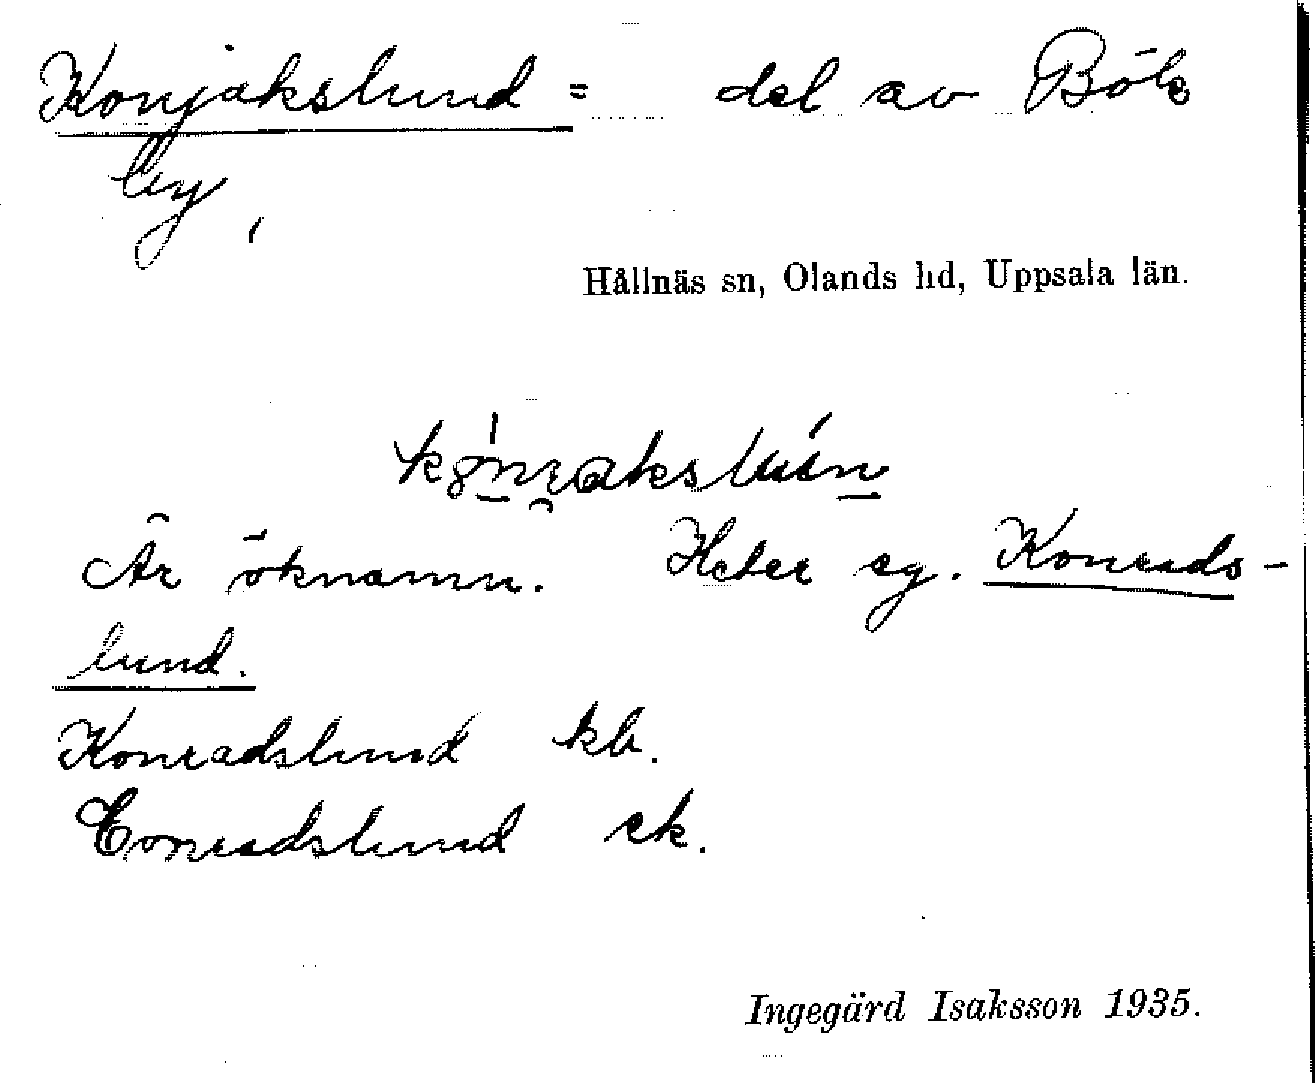 Konjakslund = del av Böle
by,
Hållnäs sn, Olands hd, Uppsala län.
Är öknamn. Heter eg. Konrads-
lund.
Konradslund kb.
Conradslund ek.
Ingegärd Isaksson 1935.